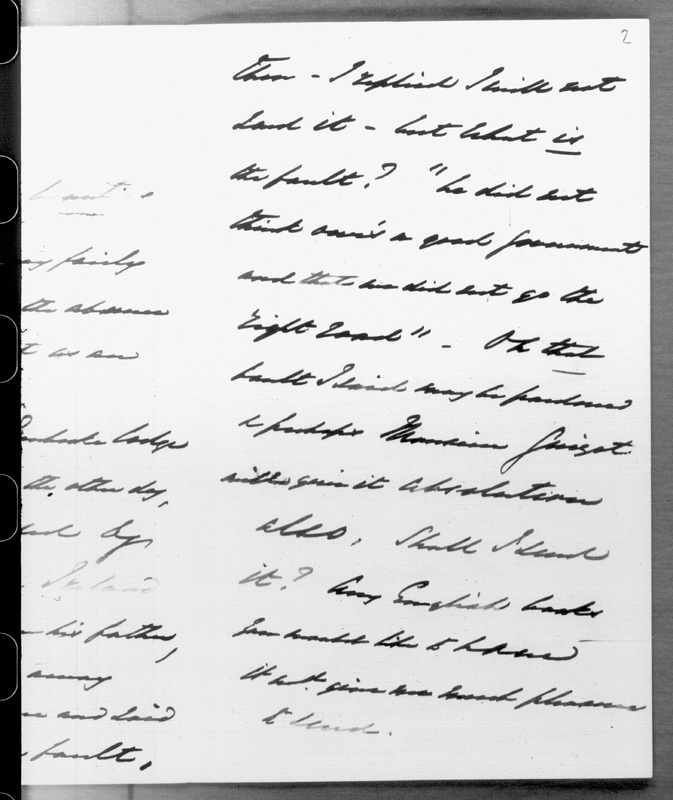 2
then - I replied I will not
send it - but what is
the fault? "he did not
think ours a good Government
and that we did not go the
right road" - Oh that
fault I said may be pardoned
& perhaps Monsieur Guizot
will give it absolution
also, Shall I send
it? Any English books
you would like to have
it wd. give me much pleasure
to send.
fairly
the absence
t as an
lodge
the other day,
Ireland
his father,
away
and said
fault,